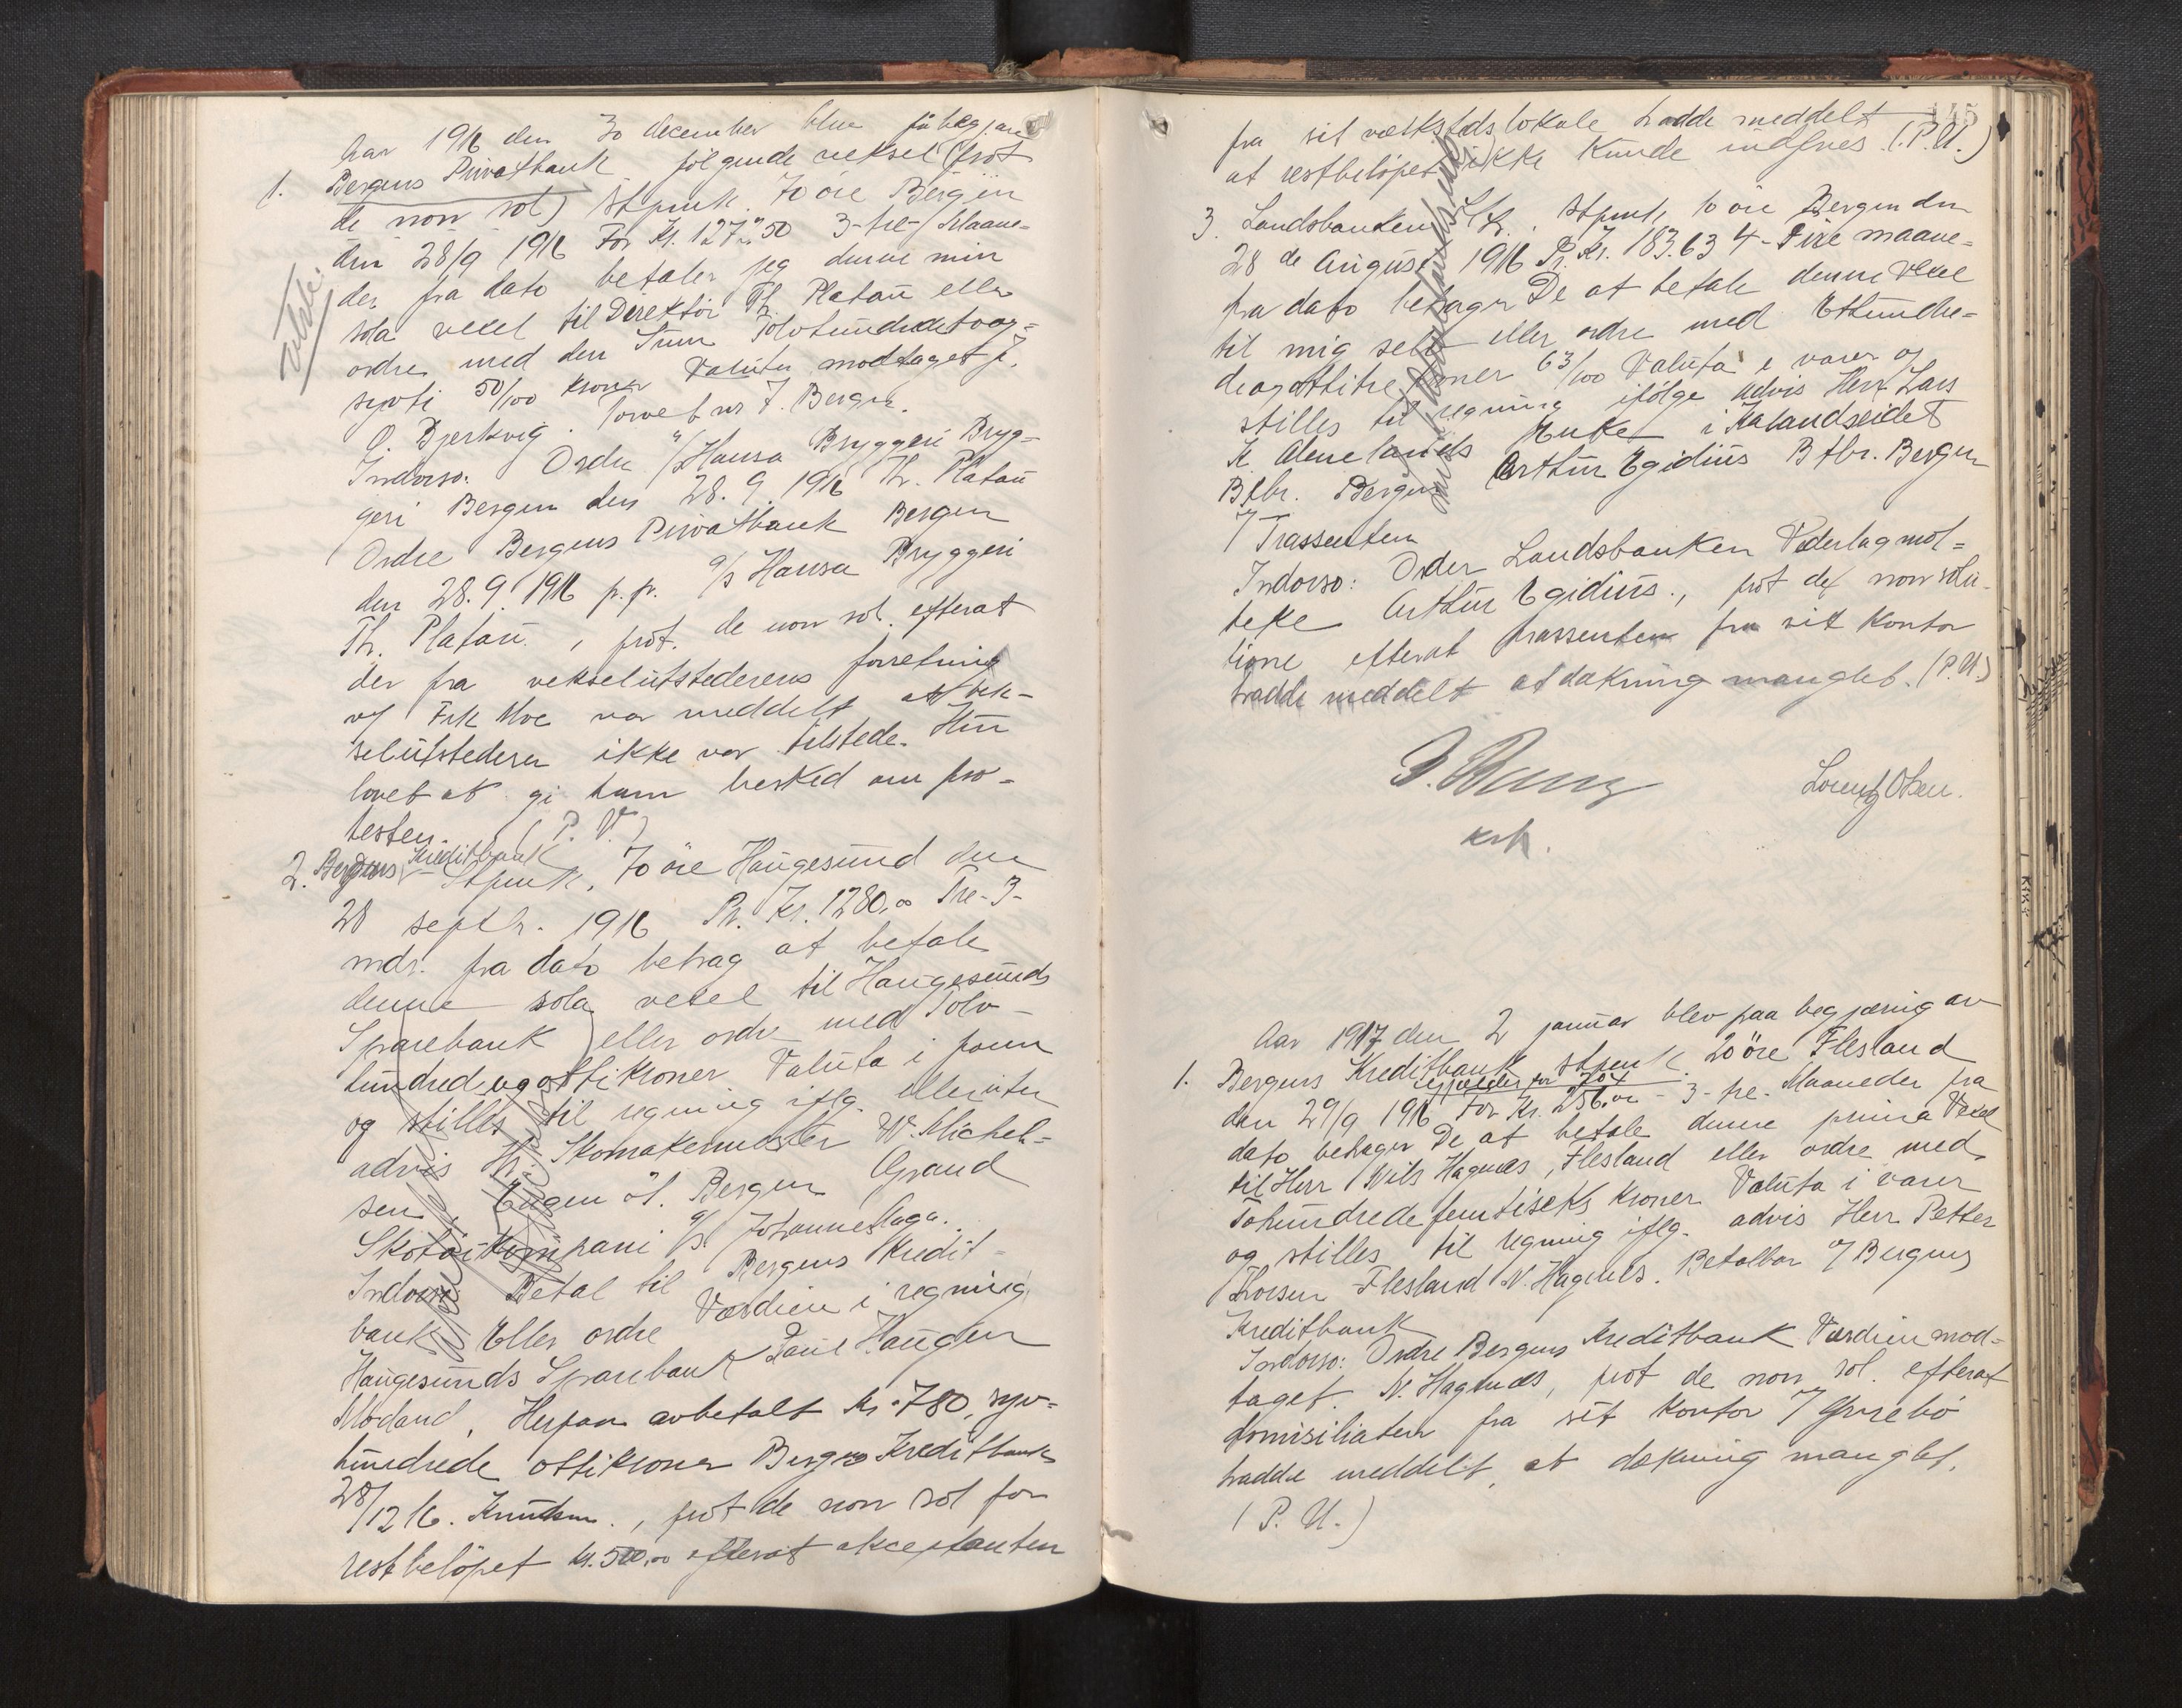 Aar 1916 den 30 december blev
1. Bergens Privatbank følgende veksel (prot
de non sol) Stpmk. 70 øre Bergen
den 28/9 1916 For Kr. 127"50 3-tre-/Maane=
der fra dato betaler jeg denne min
sola vexel til Direktör Th. Platou eller
ordre med den Sum Tolvhundredetvog=
sytti 50/100 kroner Valuta modtaget
O. Bjerkvig. Torvet nr 7. Bergen.
Indorso: Ordre A/S Hansa Bryggeri Bryg=
geri Bergen den 28.9.1916 Th. Platou
Ordre Bergens Privatbank Bergen
den 28.9.1916 p.p. A/S Hansa Bryggeri
Th. Platou, prot. de non sol. efterat
der fra vekselutstederens forretning
v/ Frk Moe var meddelt at vek-
selutstederen ikke var tilstede. Hun
lovet at gi ham besked om pro=
testen. (P. U.)
2. Bergens Kreditbank Stpmk. 70 øre Haugesund den
28 septbr. 1916 Pr. Kr. 1280.00 Tre-3-
mdr. fra dato behag at betale
denne sola vexel til Haugesunds
Sparebank eller ordre med Tolv-
hundred og otti kroner Valuta i
og stilles til regning iflg. eller uten
advis Hr. Skomakermester W. Michel=
sen, Engen 21. Bergen Grand
Skotøikompani A/S. Johannes Aaga.
Indorso: Betal til Bergens Kredit=
bank Eller ordre Værdien i regning
Haugesunds Sparebank Paul Haugen
Modand, Herpaa avbetalt Kr. 780, syv=
hundrede otti kroner Bergens Kreditbank
28/12 16. Knudsen., prot de non sol for
restbeløpet kr. 500,00 efterat akceptanten
145
fra sit verkstedslokale hadde meddelt
at restbeløpet ikke kunde indfries. (P.U.)
3. Landsbanken Stpmk, 10 øre Bergen den
28 de August 1916 Pr. Kr. 183.63 4-Fire maane=
fra dato behager De at betale denne Vexel
til mig selv eller ordre med Ethundre=
deogottitre kroner 63/100 Valuta i varer og
stilles til regning ifölge advis Herr Lars
K. Alenelands Enke i Kalandseidet
Btbr. Bergen Arthur Egidius Btbr. Bergen
/ Trassenten
Indorso: Order Landsbanken Vederlag mot=
Arthur Egidius., prot de non solu-
tione efterat trassenten fra sit kontor
hadde meddelt at dækning manglet. (P.U.)
Lorentz Olsen.
Aar 1917 den 2 januar blev paa begjæring av
1. Bergens Kreditbank stpmk. 20 øre Flesland
den 29/9 1916 For Kr. 256.00 - 3-tre-Maaneder fra
dato behager De at betale denne prima Vexel
til Herr Nils Hagenæs, Flesland eller ordre med
Tohundredefemtiseks Kroner Valuta i varer
og stilles til regning iflg. advis Herr Petter
Thorsen Flesland N. Hagenæs. Betalbar i Bergens
Kreditbank
Indorso: Ordre Bergens Kreditbank Værdien mod=
taget. N. Hagenæs, prot de non sol. efterat
domisiliaten fra sit kontor
hadde meddelt, at dækning manglet.
(P. U.)